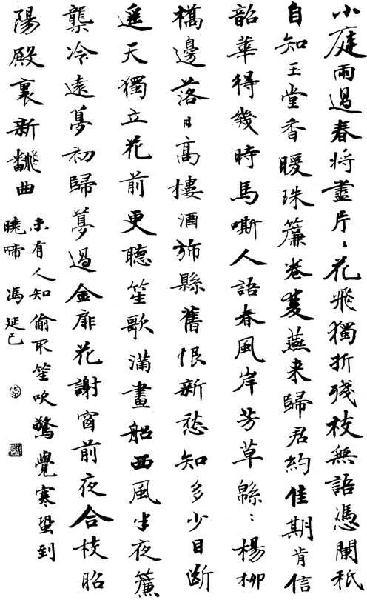 小庭雨過春將盡片〻花飛獨折殘枝無語憑闌秖
自知玉堂香暖珠簾卷雙燕来歸君約佳期肯信
韶華得幾時馬嘶人語春風岸芳草緜〻楊柳
橋邊落日高樓酒旆縣舊恨新愁知多少目斷
遥天獨立花前更聽笙歌滿畫船西風半夜簾
櫳冷遠夢初歸夢過金扉花謝窗前夜合枝昭
陽殿裏新翻曲
未有人知偷取笙吹驚覺寒蛩到
曉啼 馮延巳